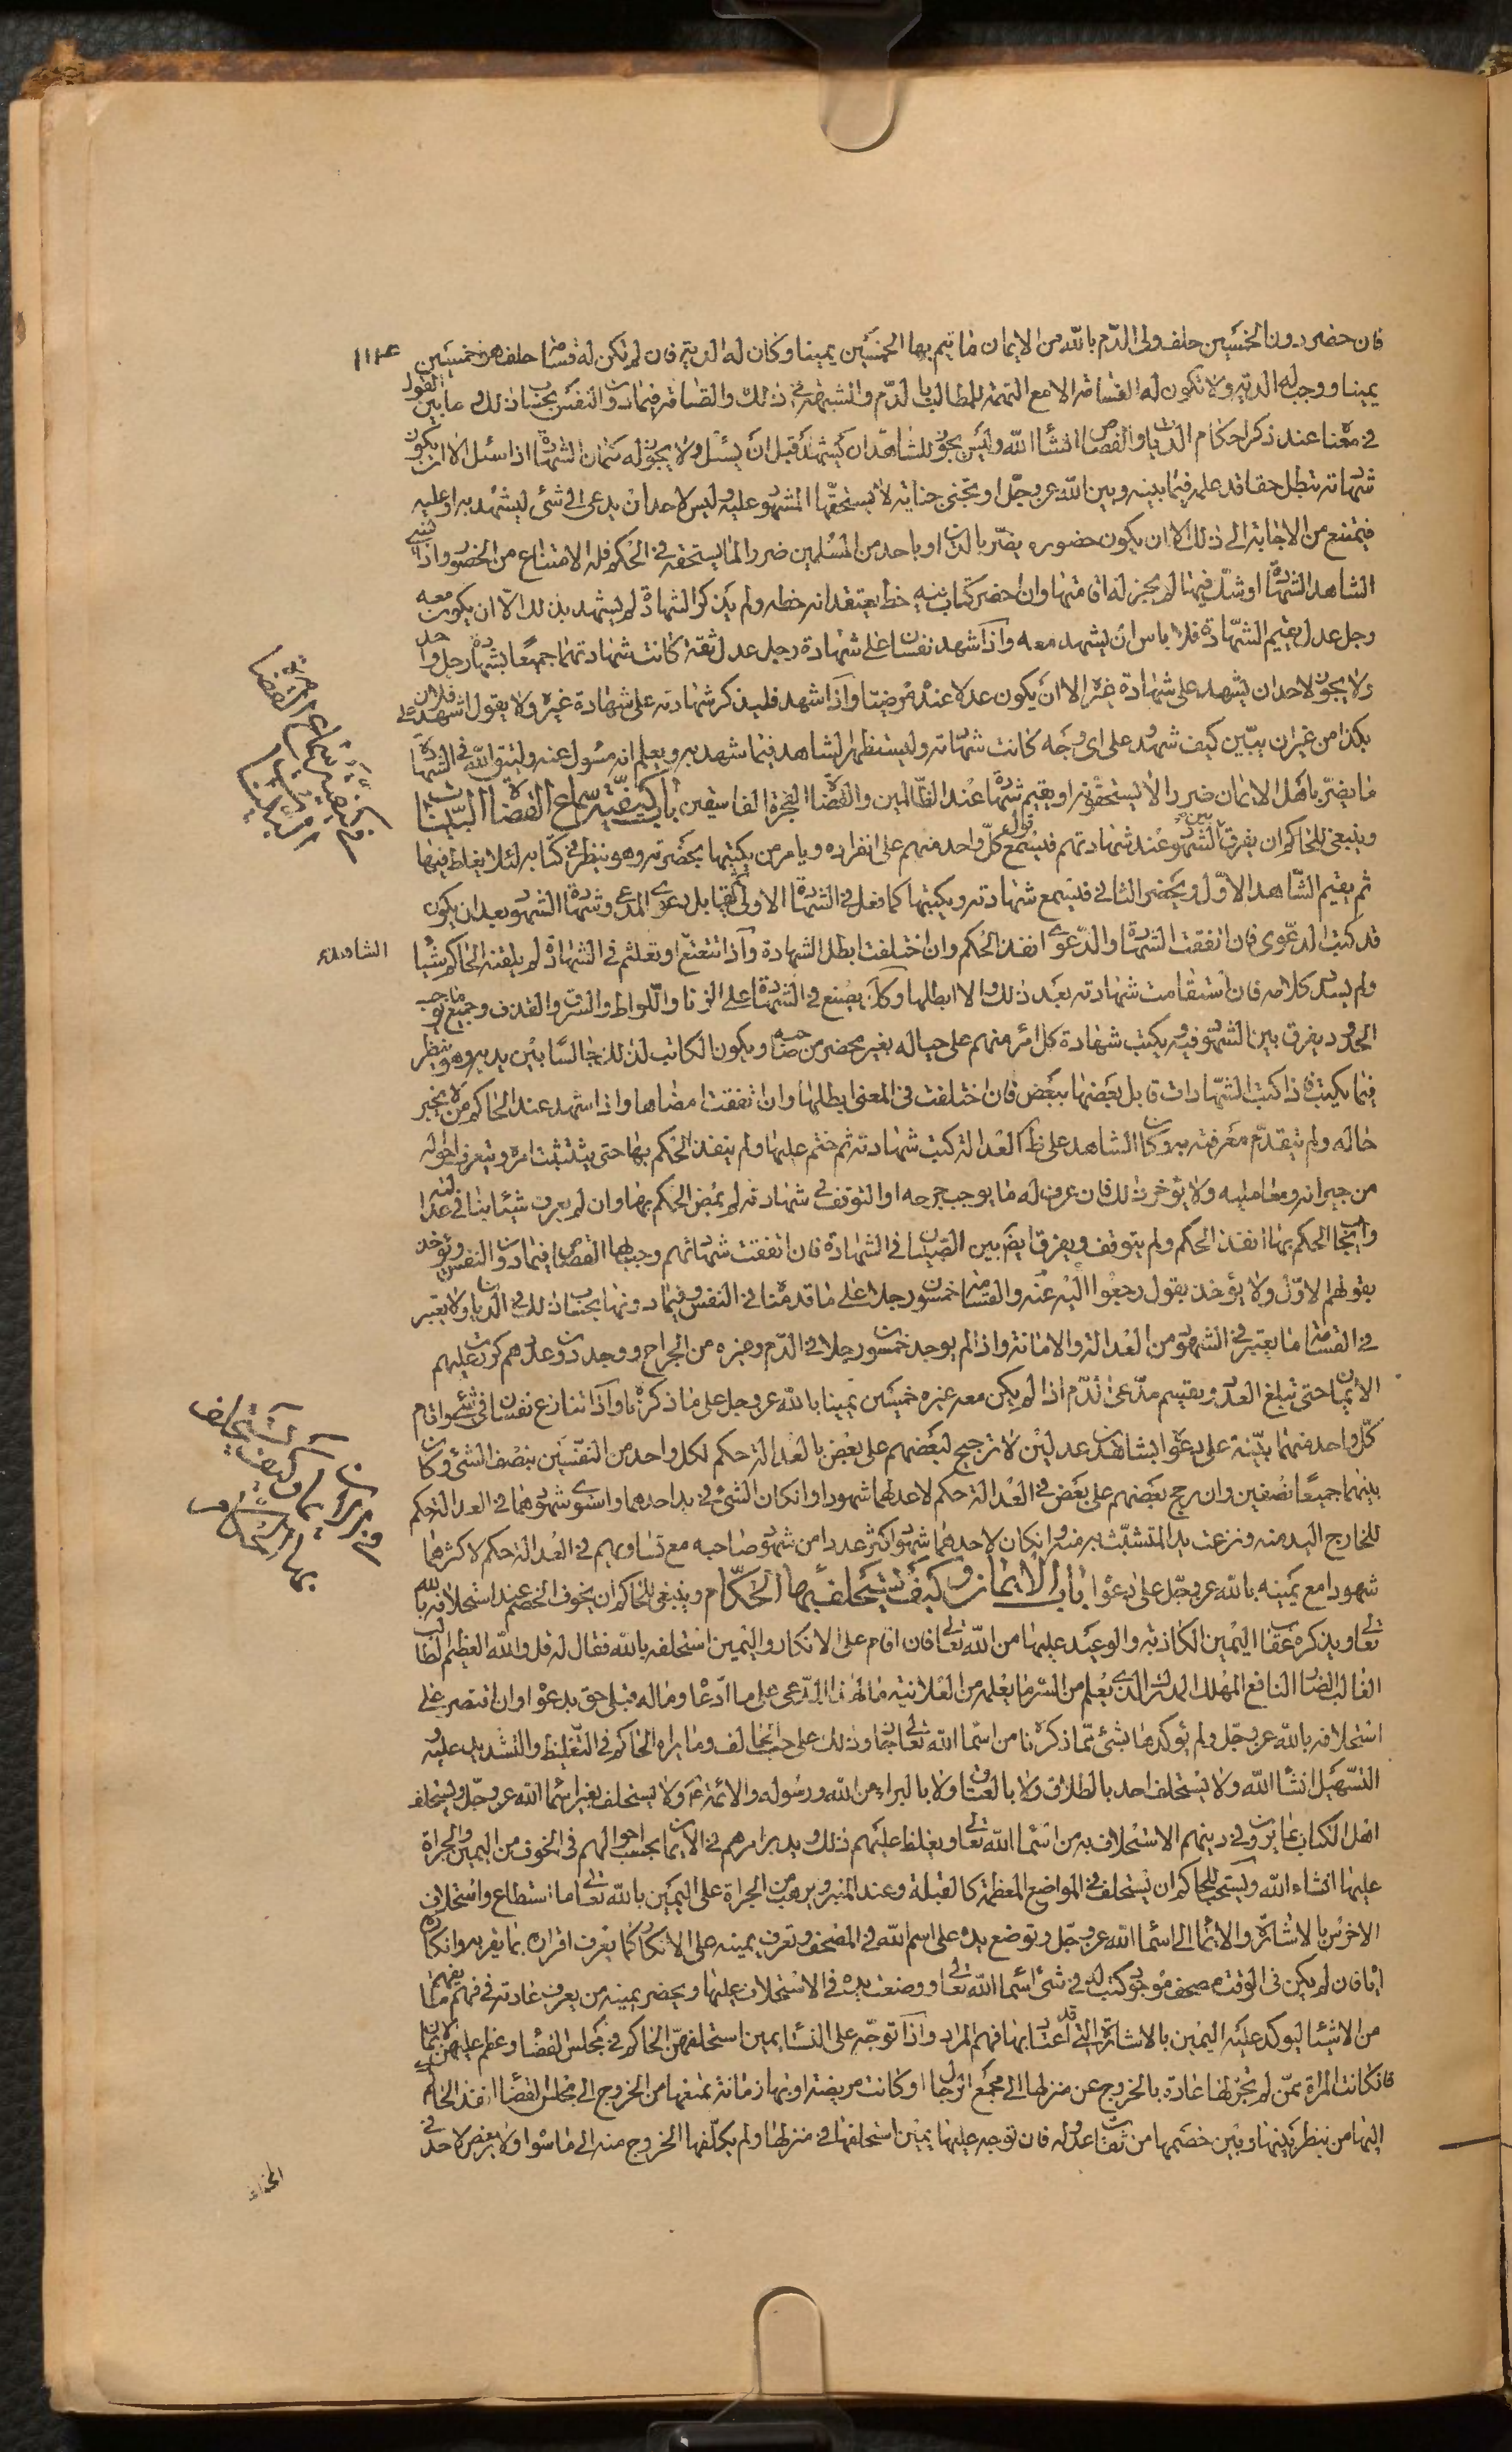 فان حضر دون الخمسين حلف ولى الدم بالله من الايمان ما يتم بها الخمسين يمينا وكان له الدية فان لم تكن له قسامة حلف هو خمسين
يمينا ووجب له الدية ولا تكون له القسامة الا مع التهمة للمطالب بالدم والشبهة في ذلك والقسامة فيما دون النفس بحساب ذلك و ما بين القول
في معناه عند ذكر احكام الديات والقصاص انشأ الله وليس يجوز للشاهد ان يشهد قبل ان يسئل ولا يجوز له كتمان الشهادة اذا سئل الا ان يكون
شهادته تبطل حقا قد علمه فيما بينه وبين الله عز وجل او تجنى جناية لا يستحقها المشهود عليه وليس لاحد ان يدعى الى شئ ليشهد به او عليه
فيمتنع من الاجابة الى ذلك الا ان يكون حضوره يضر بالدين او باحد من المسلمين ضررا لا يستحقه في الحكم فله الامتناع من الحضور واذا نسى
الشاهد الشهادة او شك فيها لم يجز له اقامتها وان احضر كتاب فيه خط يعتقد انه خطه ولم يذكر الشهادة لم يشهد بذلك الا ان يكون معه
رجل عدل يقيم الشهادة فلا باس ان يشهد معه واذا شهد نفسان على شهادة رجل عدل ثقة كانت شهادتهما جميعا بشهادة رجل واحد
ولا يجوز لاحد ان يشهد على شهادة غيره الا ان يكون عدلا عنده مرضيا واذا شهد فليذكر شهادته على شهادة غيره ولا يقول اشهد على فلان
بكذا من غير ان يبين كيف شهد وعلى اى وجه كانت شهادته وليستظهر الشاهد فيما شهد به ويعلم انه مسئول عنه وليتق الله في الشهادة
ما يضر باهل الايمان ضررا لا يستحقونه او يقيم شهادة عند الظالمين والقضاة الفجرة الفاسقين باب كيفية سماع القضاة البينات
وينبغى للحاكم ان يفرق بين الشهود عند شهادتهم فيسمع قول كل واحد منهم على انفراده ويامر من يكتبها بحضرته وهو ينظر في كتابه لئلا يغلط فيها
ثم يقيم الشاهد الاول ويحضر الثانى فيسمع شهادته ويكتبها كما فعل في الشهادة الاولى ثم يقابل بدعوى المدعى وشهادة الشهود بعد ان يكون
قد كتب الدعوى فان اتفقت الشهادة والدعوى انفذ الحكم وان اختلفت ابطل الشهادة واذا تتعتع او تعلثم في الشهادة لم يلقنه الحاكم شيئا
ولم يسدد كلامه فان استقامت شهادته بعد ذلك والا ابطلها وكذلك يصنع في الشهادة على الزنا واللواط والسرق والقذف وجميع ما يوجب
الحدود يفرق بين الشهود فيه ويكتب شهادة كل امرء منهم على حياله بغير محضر من صاحبه ويكون الكاتب لذلك جالسا بين يديه وهو ينظر
فيما يكتبه فاذا كتب الشهادات قابل بعضها ببعض فان اختلفت في المعنى ابطلها وان اتفقت امضاها واذا شهد عند الحاكم من لا يخبر
حاله ولم يتقدم معرفته به وكان الشاهد على ظاهر العدالة كتب شهادته ثم ختم عليها ولم ينفذ الحكم بها حتى يتثبت امره ويتعرف احواله
من جيرانه ومعامليه ولا يؤخر ذلك فان عرف له ما يوجب جرحه او التوقف في شهادته لم يمض الحكم بها وان لم يعرف شيئا ينافى عدالته
وايجاب الحكم بها انفذ الحكم ولم يتوقف ويفرق ايضا بين الصبيان في الشهادة فان اتفقت شهادتهم وجب بها القصاص فيما دون النفس ويؤخذ
بقولهم الاول ولا يؤخذ بقول رجعوا اليه عنه والقسامة خمسون رجلا على ما قدمناه في النفس وفيما دونها بحساب ذلك في الديات ولا يعتبر
في القسامة ما يعتبر في الشهود من العدالة والامانة واذا لم يوجد خمسون رجلا في الدم وغيره من الجراح ووجد دون عددهم كررت عليهم
الايمان حتى تبلغ العدد ويقسم مدعى الدم اذا لم يكن معه غيره خمسين يمينا بالله عز وجل على ما ذكرناه واذا تنازع نفسان في شئ واقام
كل واحد منهما بينة على دعواه بشاهدين عدلين لا ترجيح لبعضهم على بعض بالعدالة حكم لكل واحد من النفسين بنصف الشئ وكان
بينهما جميعا نصفين وان رجح بعضهم على بعض في العدالة حكم لاعدلهما شهودا وان كان الشئ في يد احدهما واستوى شهودهما في العدالة حكم
للخارج اليد منه ونزعت يد المتشبث به منه وان كان لاحدهما شهود اكثر عددا من شهود صاحبه مع تساويهم في العدالة حكم لاكثرهما
شهودا مع يمينه بالله عز وجل على دعواه باب الايمان وكيف يستحلف بها الحكام وينبغى للحاكم ان يخوف الخصم عند استحلافه بالله
تعالى ويذكره عقاب اليمين الكاذبة والوعيد عليها من الله تعالى فان اقام على الانكار واليمين استحلفه بالله فقال له قل والله العظيم الطالب
الغالب الضار النافع المهلك المدرك الذى يعلم من السر ما يعلمه من العلانية ما لهذا المدعى على ما ادعاه وما له قبلى حق بدعواه وان اقتصر على
استحلافه بالله عز وجل ولم يؤكدها بشئ مما ذكرناه من اسماء الله تعالى جاز وذلك على حسب الحالف وما يراه الحاكم في التغليظ والتشديد عليه
التسهيل انشأ الله ولا يستحلف احد بالطلاق ولا بالعتاق ولا بالبراءة من الله ورسوله والائمة ع ولا يستحلف بغير اسماء الله عز وجل ويستحلف
اهل الكتاب بما يرون في دينهم الاستحلاف به من اسماء الله تعالى ويغلظ عليهم ذلك ويدبر امرهم في الايمان بحسب احوالهم في الخوف من اليمين والجراة
عليها انشاء الله ويستحب للحاكم ان يستحلف في المواضع المعظمة كالقبلة وعند المنبر ويرهب من الجراة على اليمين بالله تعالى ما استطاع واستحلاف
الاخرس بالاشارة والايماء الى اسماء الله عز وجل وتوضع يده على اسم الله في المصحف وتعرف يمينه على الانكار كما يعرف اقراره بما يقر به وانكاره
اياه فان لم يكن في الوقت مصحف موجود كتب له في شئ اسماء الله تعالى ووضعت يده في الاستحلاف عليها ويحضر يمينه من يعرف عادته في فهم ما يفهمه
من الاشياء ليؤكد عليه اليمين بالاشارة التى قد اعتاد بها فهم المراد واذا توجه على النساء يمين استحلفهن الحاكم في مجلس القضاء وعظم عليهن الايمان
فان كانت المراة ممن لم تجر لها عادة بالخروج عن منزلها الى مجمع الرجال او كانت مريضة او بها زمانة تمنعها من الخروج الى مجلس القضاء انفذ الحاكم
اليها من ينظر بينها وبين خصمها من ثقات عدوله فان توجه عليها يمين استحلفها في منزلها ولم يكلفها الخروج منه الى ما سواه ولا يعرض لاحد في